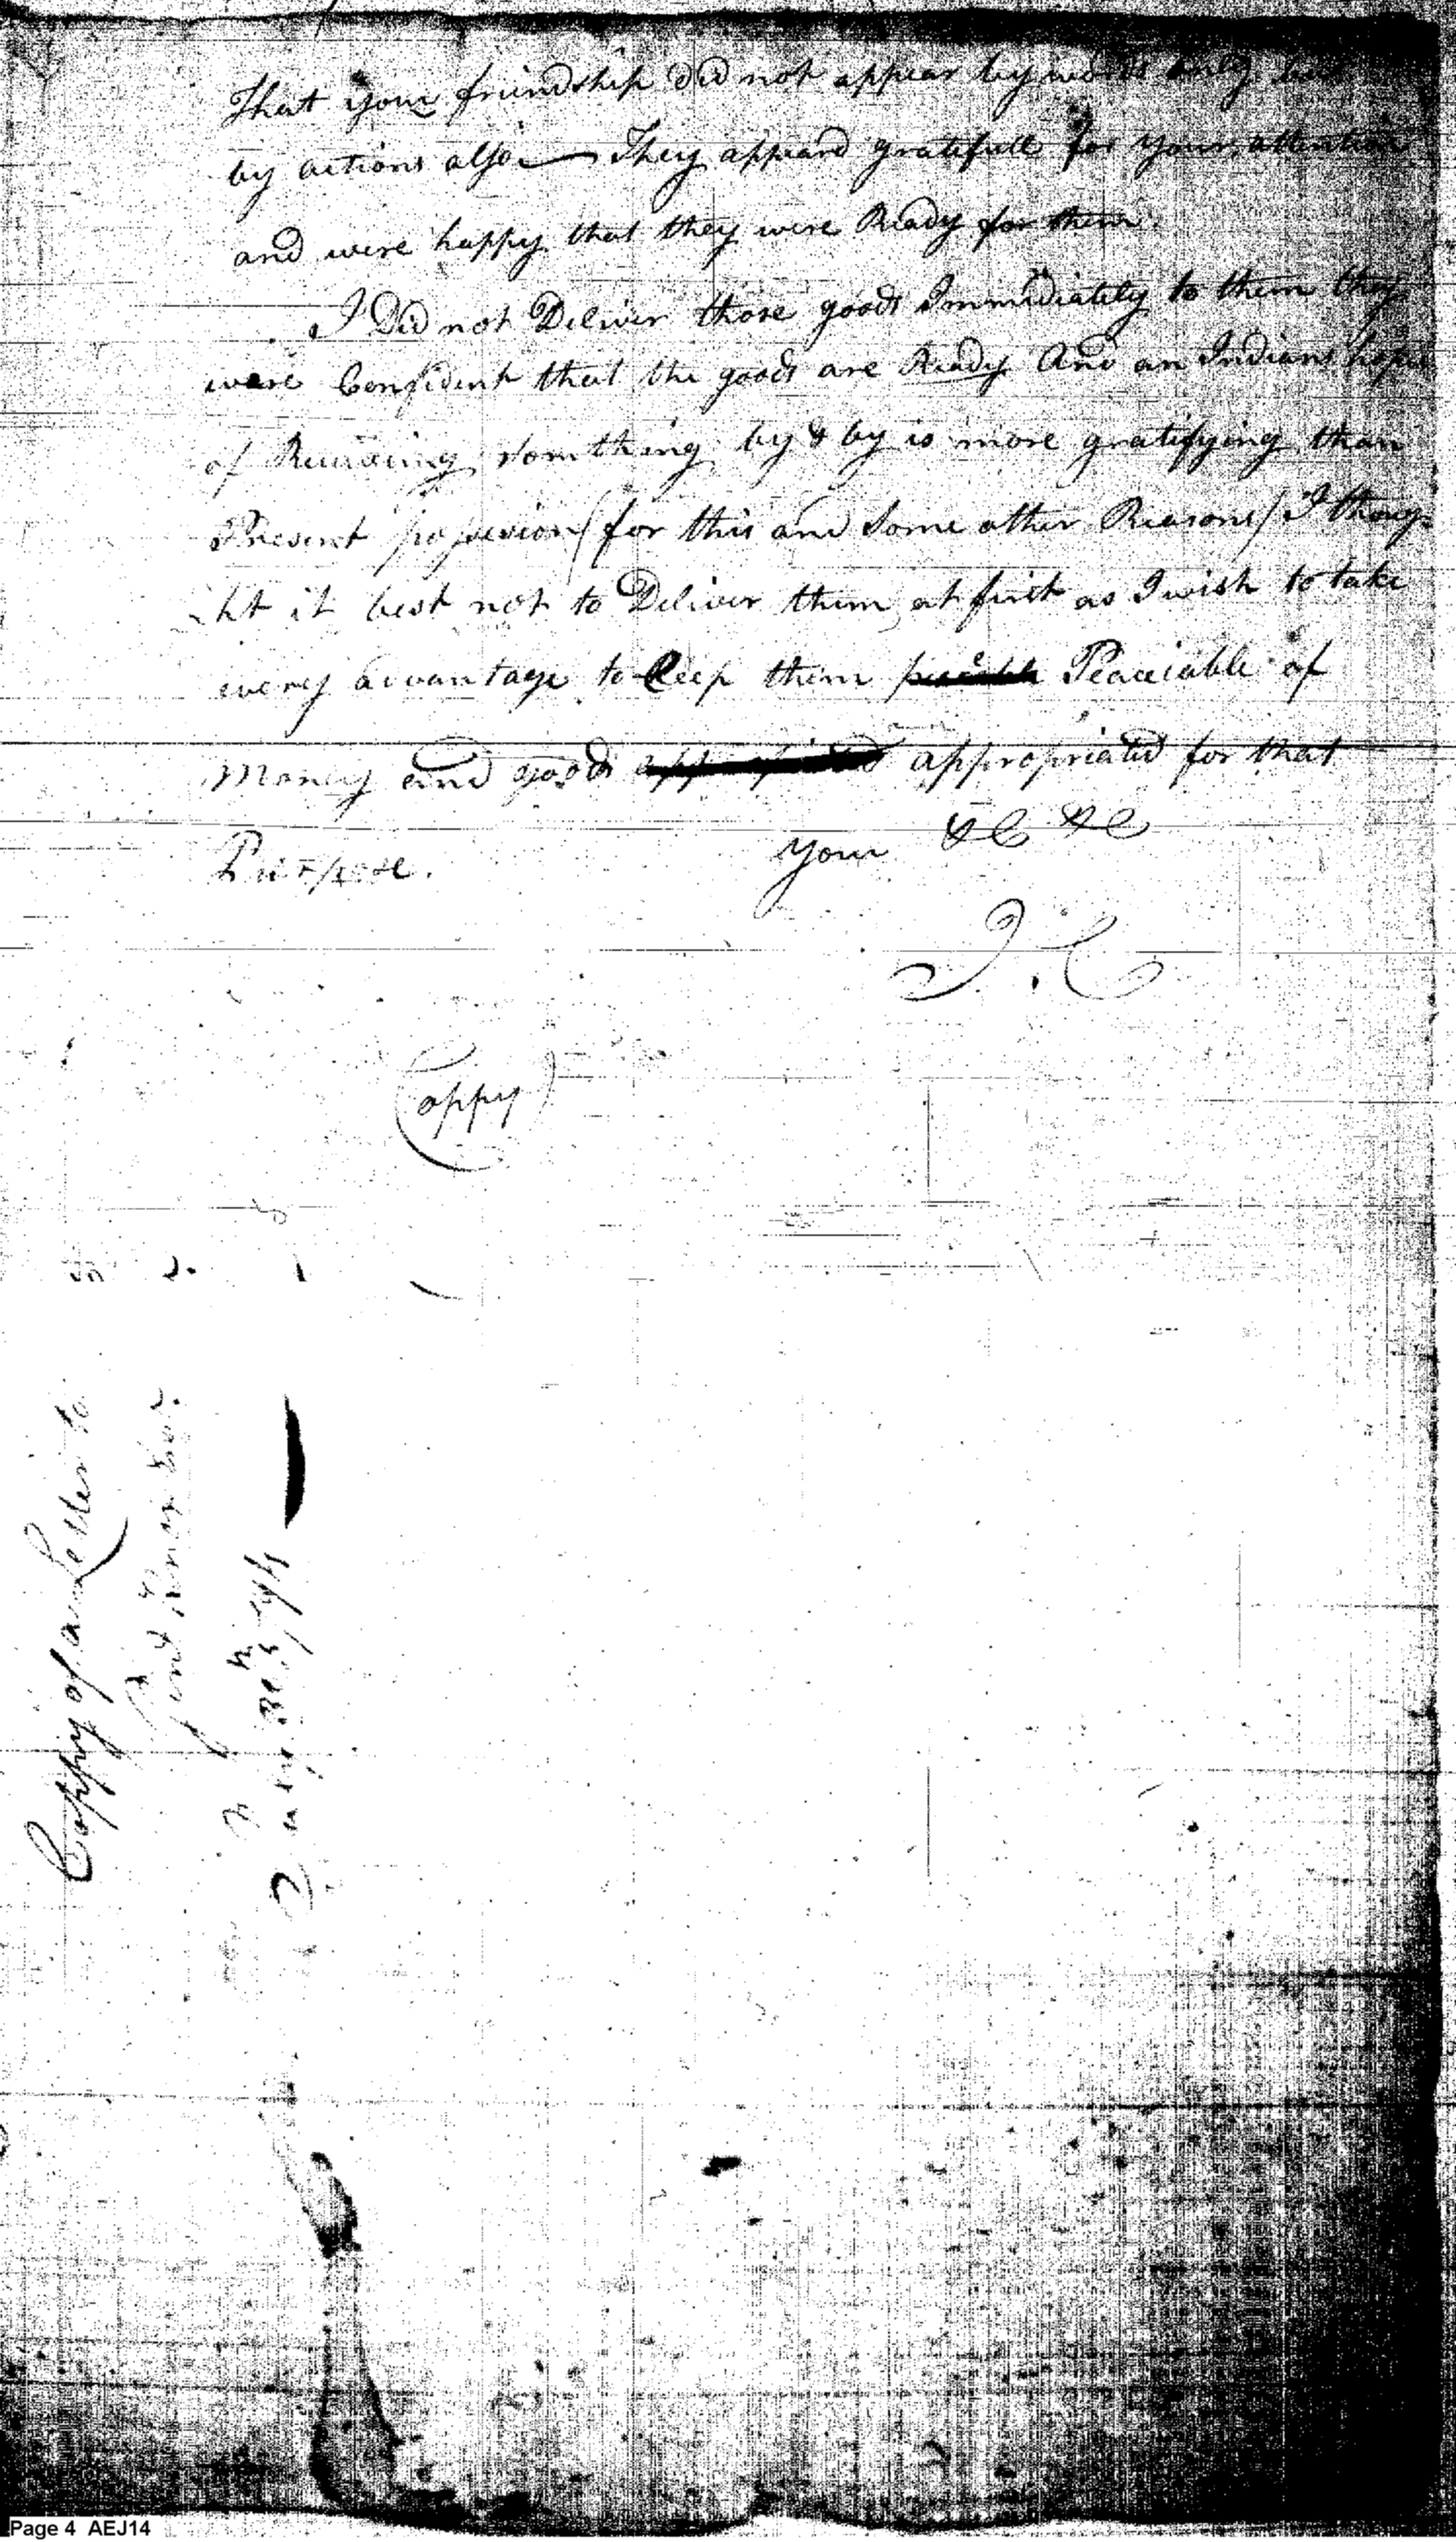 That your friendship did not appear by words only but
by actions also — They appeard gratefull for your attention
and were happy that they were Ready for them.
I Did not Deliver those goods Immediately to them they
were Confident that the goods are Ready And an Indians hope
of Receiving somthing by & by is more gratifying than
Present possession (for this and some other Reasons) I thoug-
ht it best not to Deliver them at first as I wish to take
every advantage to Keep them Peaceiable of
Money and goods appropriated for that
Purpose.
Your &C &C
J. C
(Coppy)
Coppy of a Letter to
94
Page 4 AEJ14